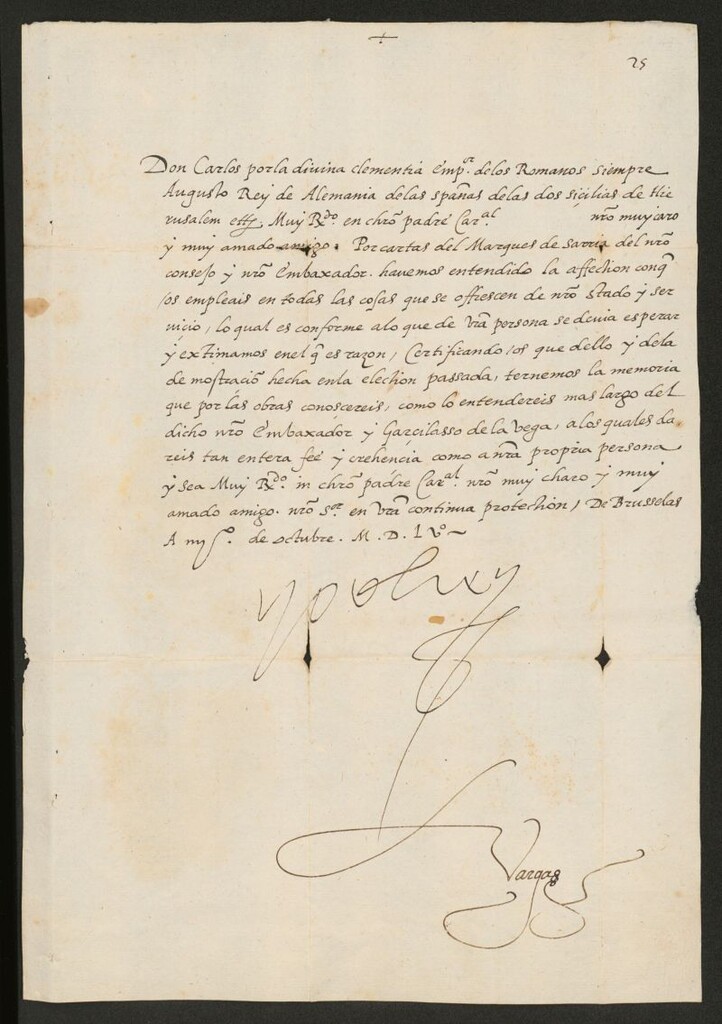 +
25
Don Carlos por la diuina clementia Emp.or delos Romanos siempre
Augusto Rey de Alemania delas spañas delas dos sicilias de Hie
rusalem etc. Muy R.do en chr̃o padre Car.al nr̃o muy caro
y muy amado amigo. Por cartas del Marques de Sarria del nr̃o
consejo y nr̃o Embaxador. hauemos entendido la affection conq̃
os empleais en todas las cosas que se offrescen de nr̃o stado y ser
uicio, lo qual es conforme alo que de vr̃a persona se deuia esperar
y extimamos enel q̃ es razon, Certificando os que dello y dela
demostració hecha enla election passada, ternemos la memoria
que por las obras conosçereis, como lo entendereis mas largo del
dicho nr̃o Embaxador y Garcilasso de la Vega, a los quales da
reis tan entera fee y crehencia como a nr̃a propria persona
y sea Muy R.do in chr̃o padre Car.al nr̃o muy charo y muy
amado amigo. nr̃o s.or en vr̃a continua protection, De Brusselas
A de octubre. M. D. L v.o
yo el rey
Vargas